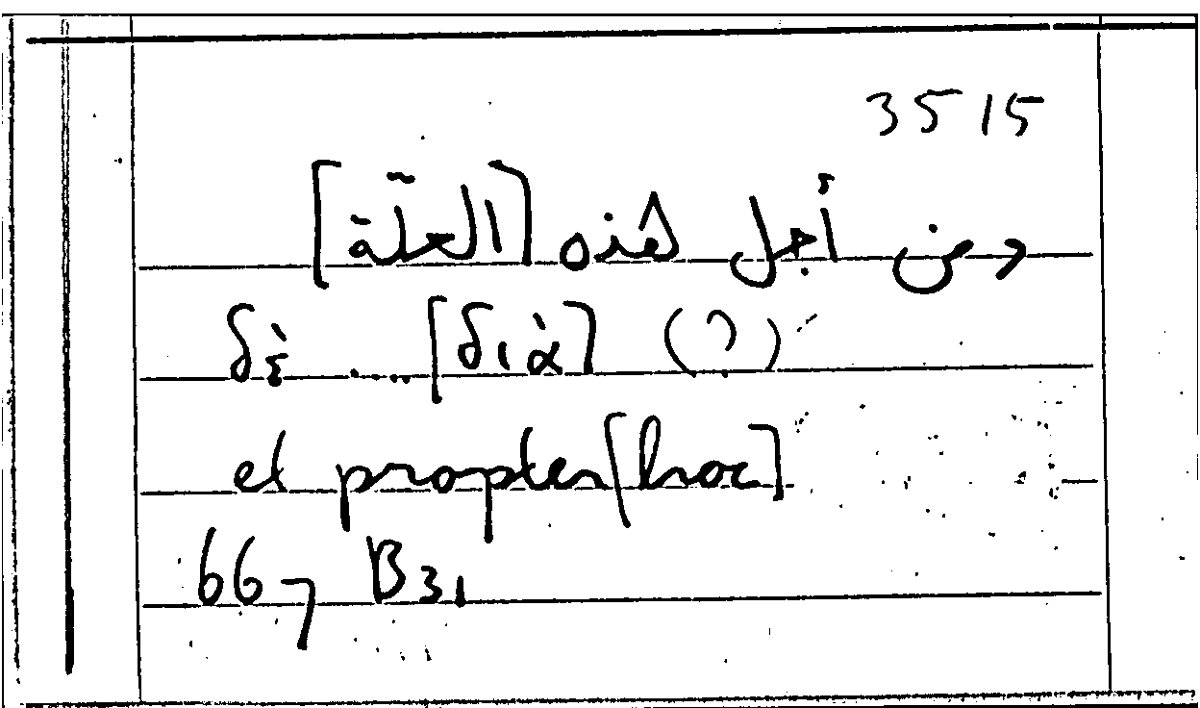 3515
ومن أجل هذه [العلّة]
δὲ .... [διὰ] (?)
et propter [hoc]
667 B31